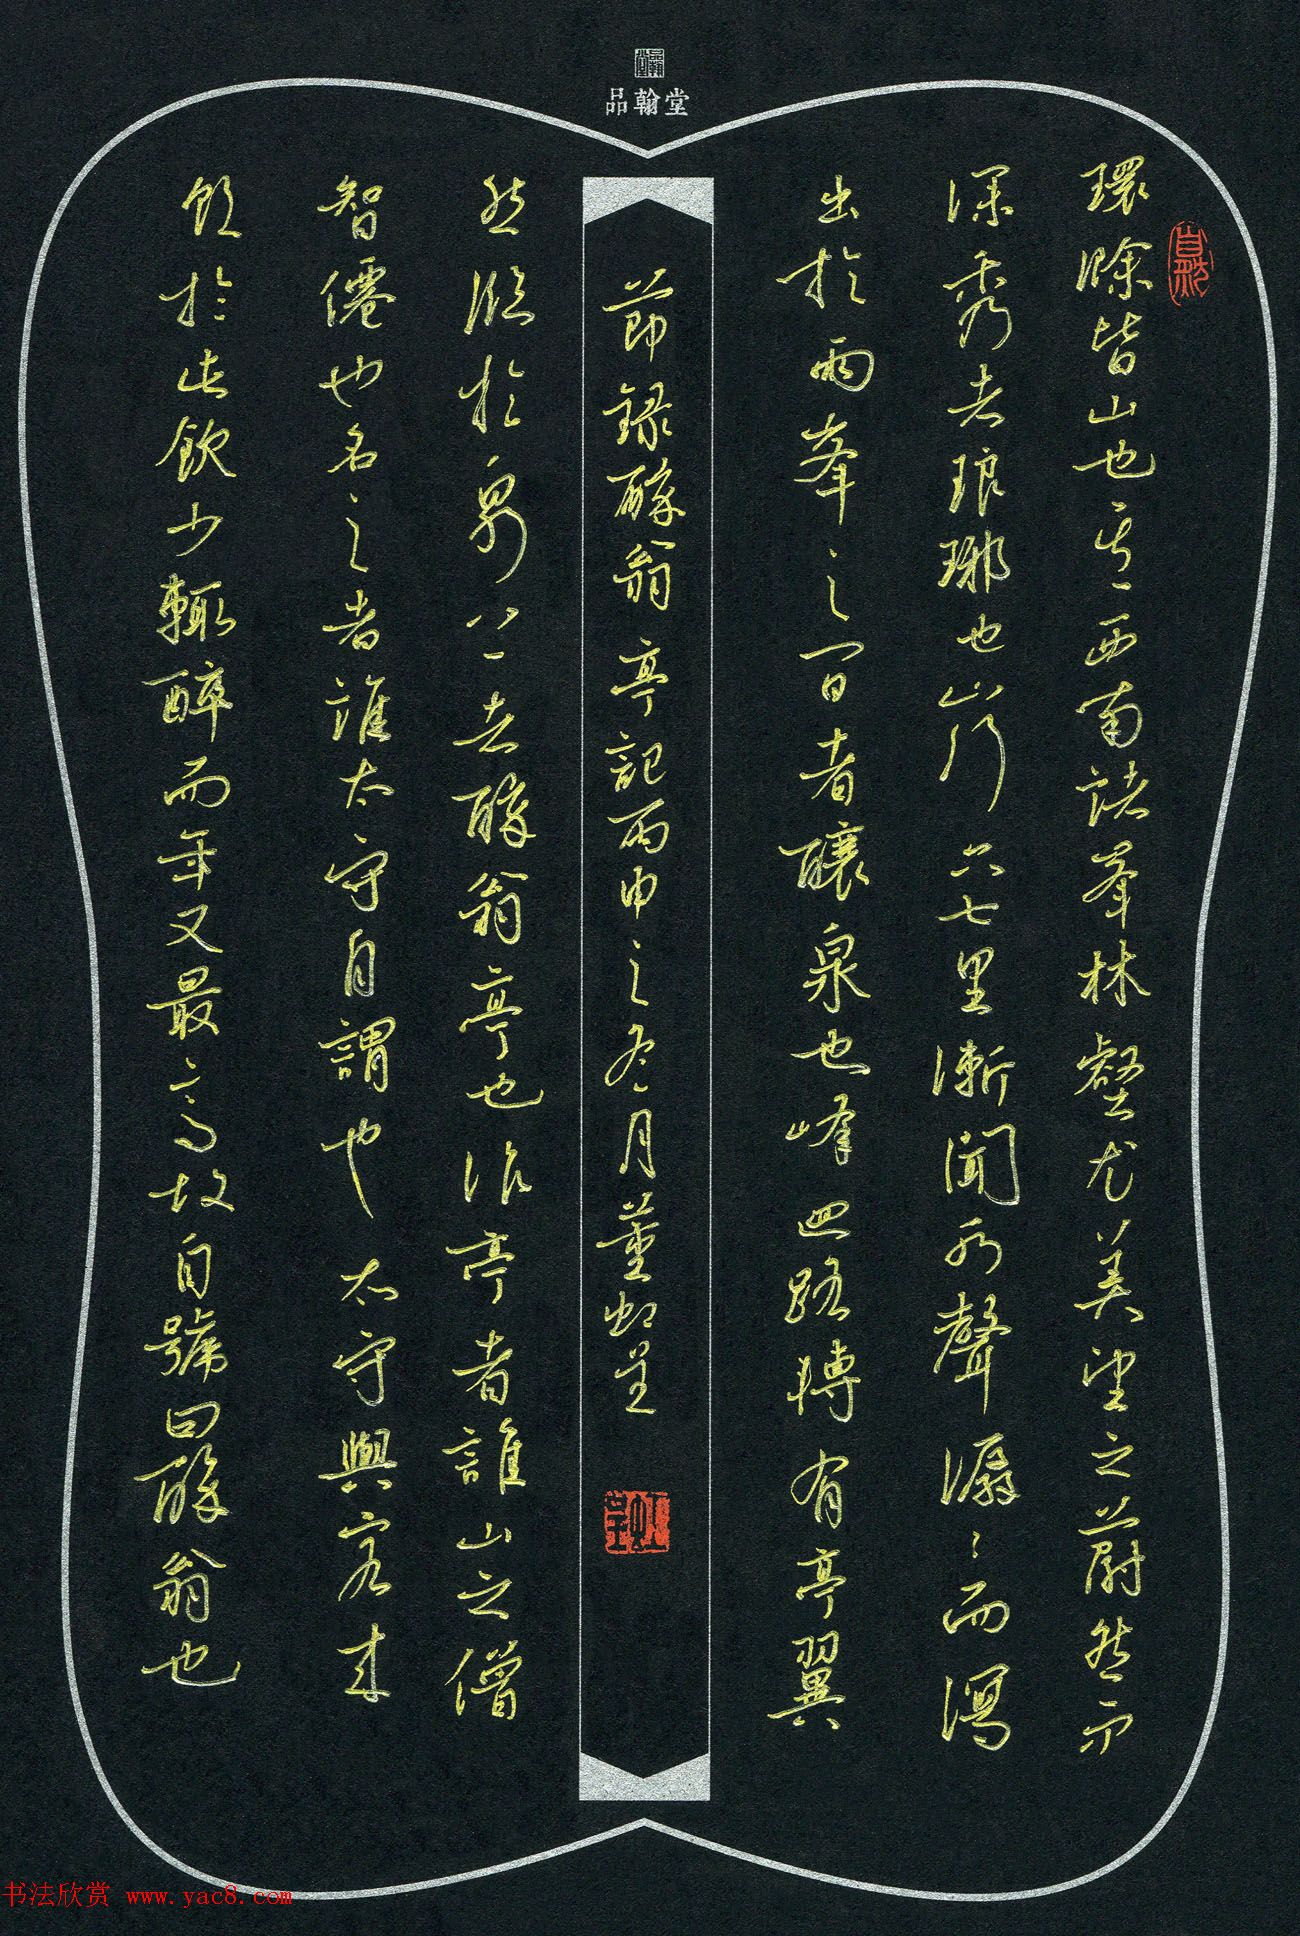 品翰堂
環滁皆山也其西南諸峯林壑尤美望之蔚然而
深秀者琅琊也山行六七里漸聞水聲潺〻而瀉
出於兩峯之間者釀泉也峰回路轉有亭翼
節錄醉翁亭記丙申之冬月董虹呈
虹呈
然臨於泉上者醉翁亭也作亭者誰山之僧
智僊也名之者誰太守自謂也太守與客來
飲於此飲少輒醉而年又最高故自號曰醉翁也
书法欣赏 www.yac8.com